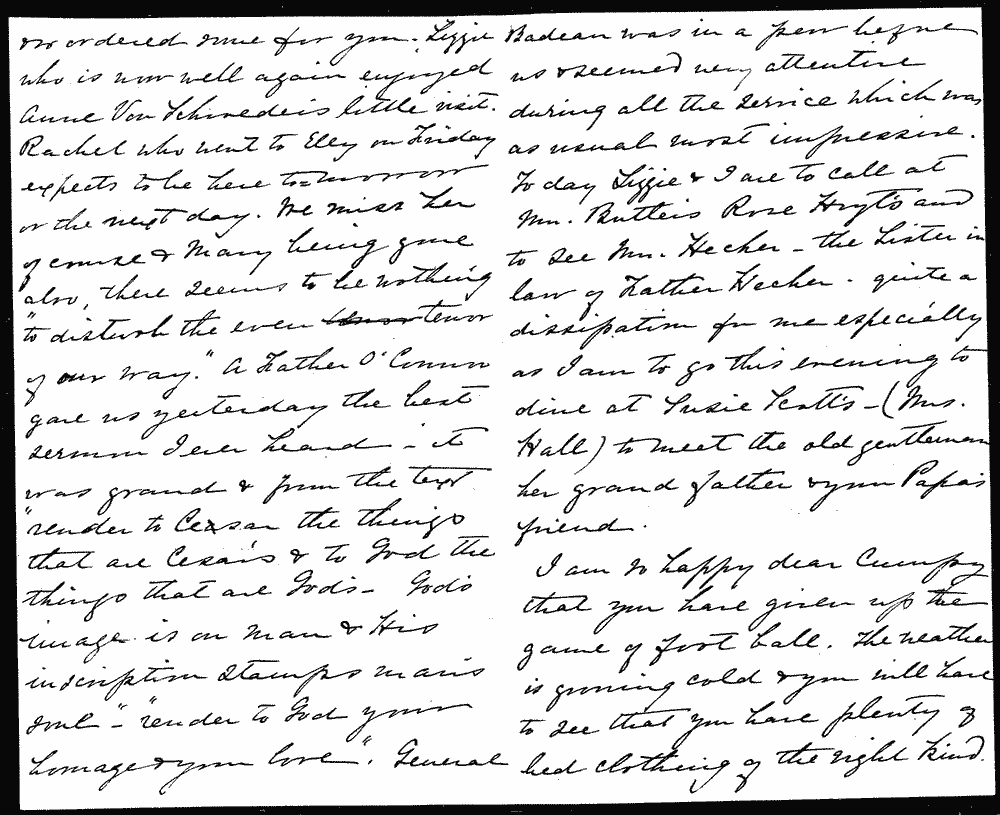 or ordered some for you. Lizzie
who is now well again enjoyed
Anne Von Schroeder's little visit.
Rachel who went to Elly on Friday
expects to be here to=morrow
or the next day. We miss her
of course & Mary being gone
also, there seems to be nothing
"to disturb the even tenor
of our way." A Father O'Connor
gave us yesterday the best
sermon I ever heard - it
was grand & from the text
"render to Cesar the things
that are Cesar's & to God the
things that are God's - God's
image is on man & His
inscription stamps man's
soul" - "render to God your
homage & your love". General
Badeau was in a pew before
us & seemed very attentive
during all the service which was
as usual most impressive.
To day Lizzie & I are to call at
Mrs. Butler's Rose Hoyt's and
to see Mrs. Hecker - the sister in
law of Father Hecker. quite a
dissipation for me especially
as I am to go this evening to
dine at Susie Scott's - (Mrs.
Hall) to meet the old gentleman
her grand father & your Papa's
friend.
I am so happy dear
that you have given up the
game of foot ball. The weather
is growing cold & you will have
to see that you have plenty of
bed clothing of the right kind.